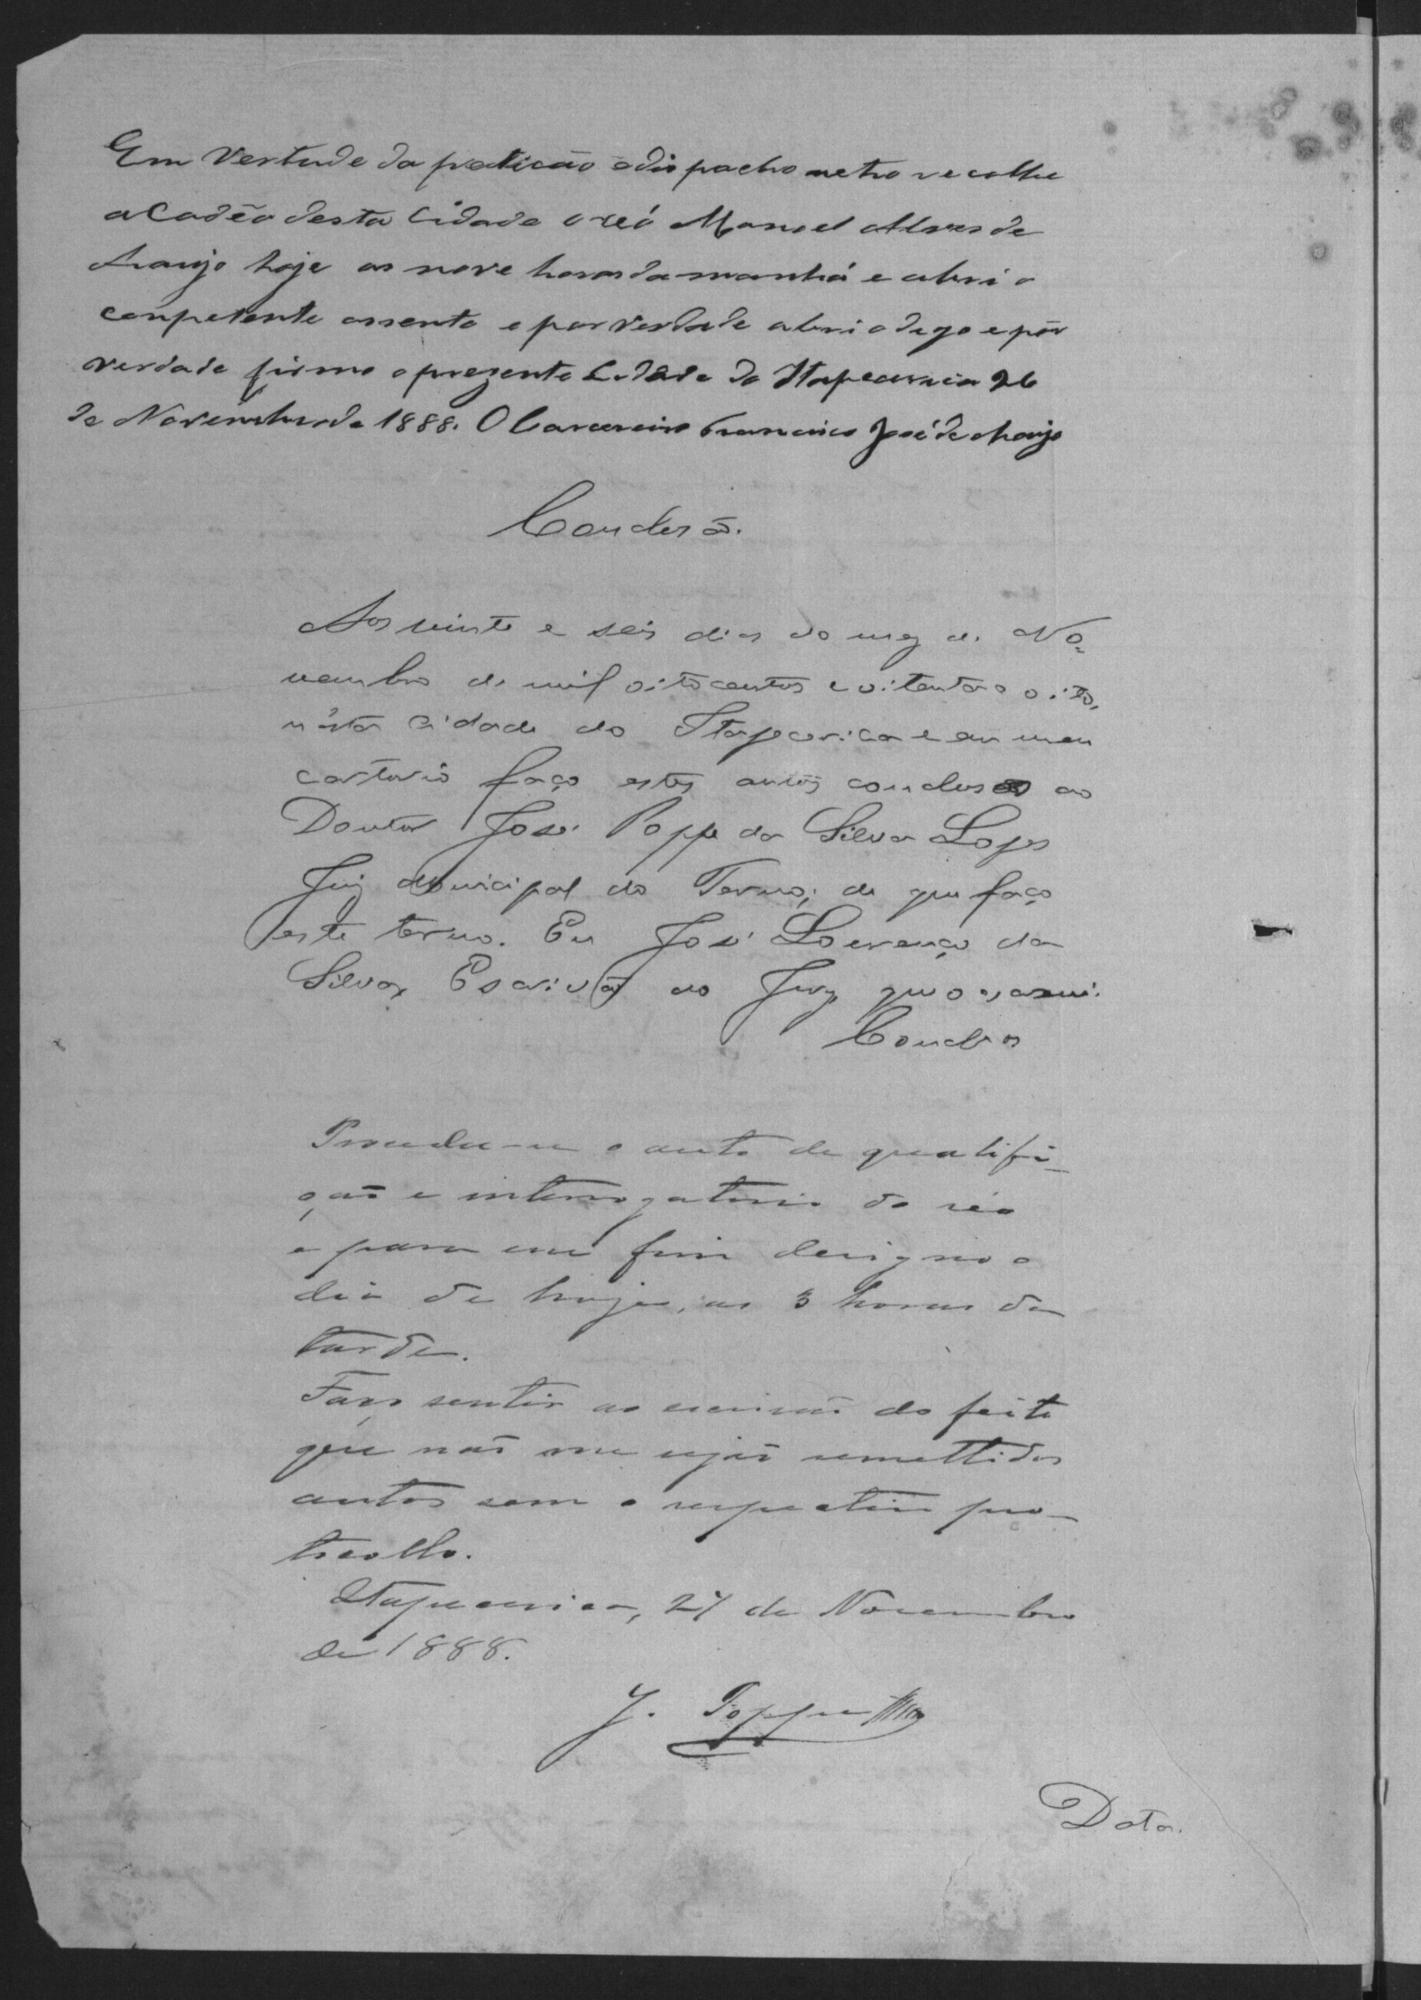 Em vertude da peticão e dispacho retro recolhe
a Cadêa desta Cidade o reó Manoel Alves de
Araujo hoje as nove horas da manhá e abri o
conpetente assento e por verdade abri o digo e por
verdade firmo o prezente Cidade da Itapecerica 26
de Novembro de 1888. O Carcereiro Francisco José de Araujo
Conclusão.
Aos vinte e seis dias do mez de No-
vembro de mil oitocentos e oitenta e oito,
nésta cidade do Itapecerica e em meu
cartorio faço estes autos conclusos ao
Doutor José Poppe da Silva Lopes
Juiz Municipal do Termo; de que faço
este termo. Eu José Lourenço da
Silva, Escrivão do Jury que o escrevi.
Conclusos
Proceda-se o auto de qualifi-
çaõ e interrogatorio do réo
e para esse fim designo o
dia de hoje, as 3 horas da
tarde.
Faço sentir ao escrivaõ do feito
que naõ me sejaõ remettidos
autos sem o respectivo pro-
tocollo.
Itapecerica, 27 de Novembro
de 1888.
J. Poppe
Data.